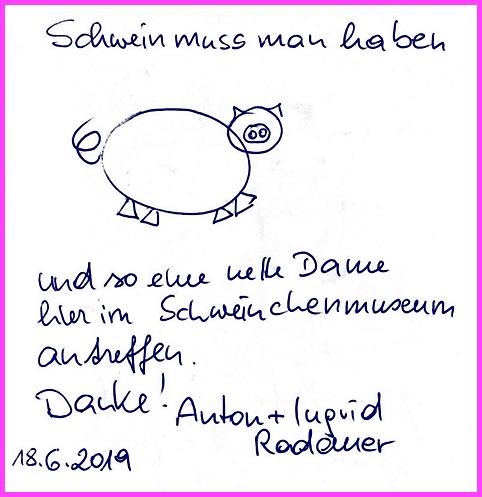 Schwein muss man haben
und so eine nette Dame
hier im Schweinchenmuseum
antreffen.
Danke! Anton + Ingrid
Radamer
18.6.2019